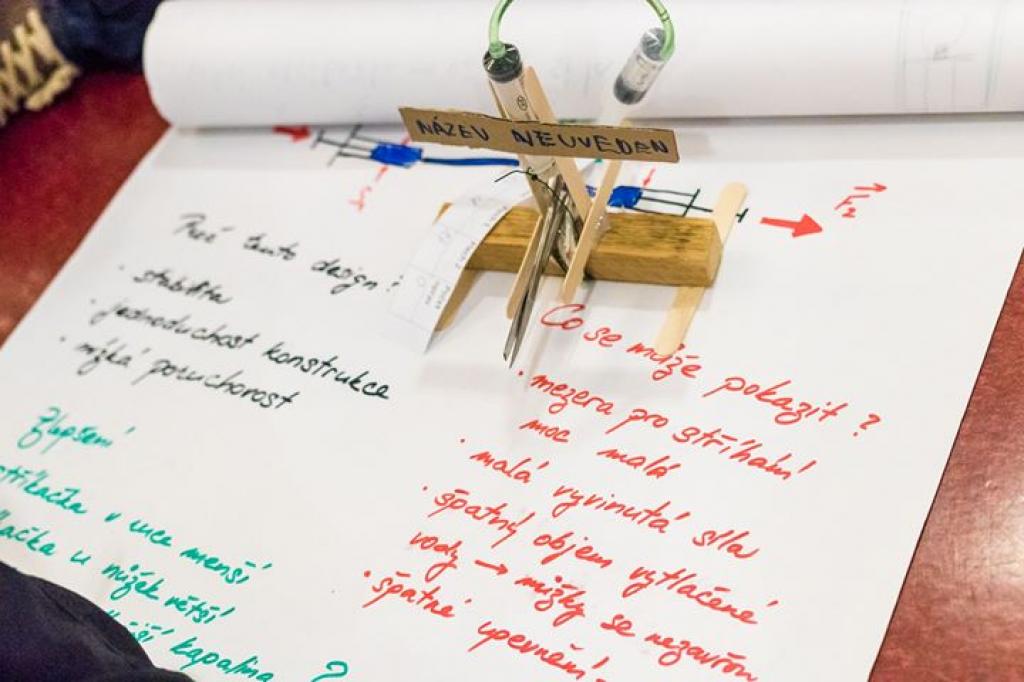 NÁZEV NEUVEDEN
F₂
Proč tento design?
• stabilita
• jednoduchost konstrukce
• nízká poruchovost
Co se může pokazit?
• mezera pro stříhání
moc malá
• malá vyvinutá síla
• špatný objem vytlačené
vody → nůžky se nezavřou
• špatné upevnění
Zlepšení
stříkačka v ruce menší
u nůžek větší
kapalina ?